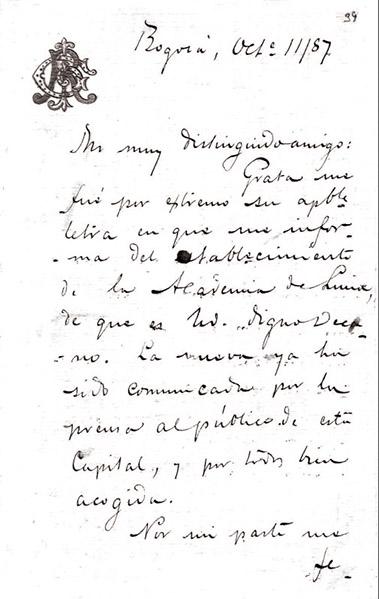 39
Bogotá, Octe 11/87
Mi muy distinguido amigo:
Grata me
fué por extremo su apble
letra en que me infor-
-ma del establecimiento
de la Academia de Lima,
de que es Ud. digno Deca-
-no. La nueva ya ha
sido comunicada por la
prensa al público de esta
Capital, y por todos bien
acogida.
Por mi parte me
fe-